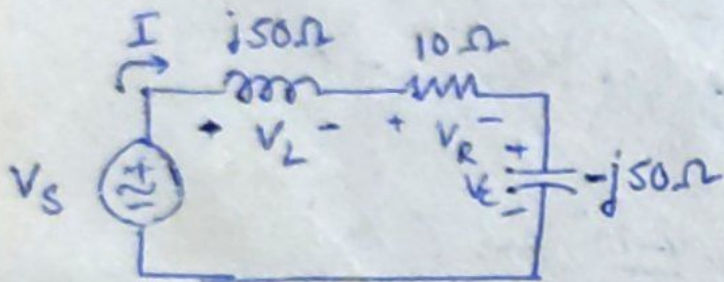 I j50Ω 10Ω
+ V_L - + V_R -
V_S + - + V_C - -j50Ω